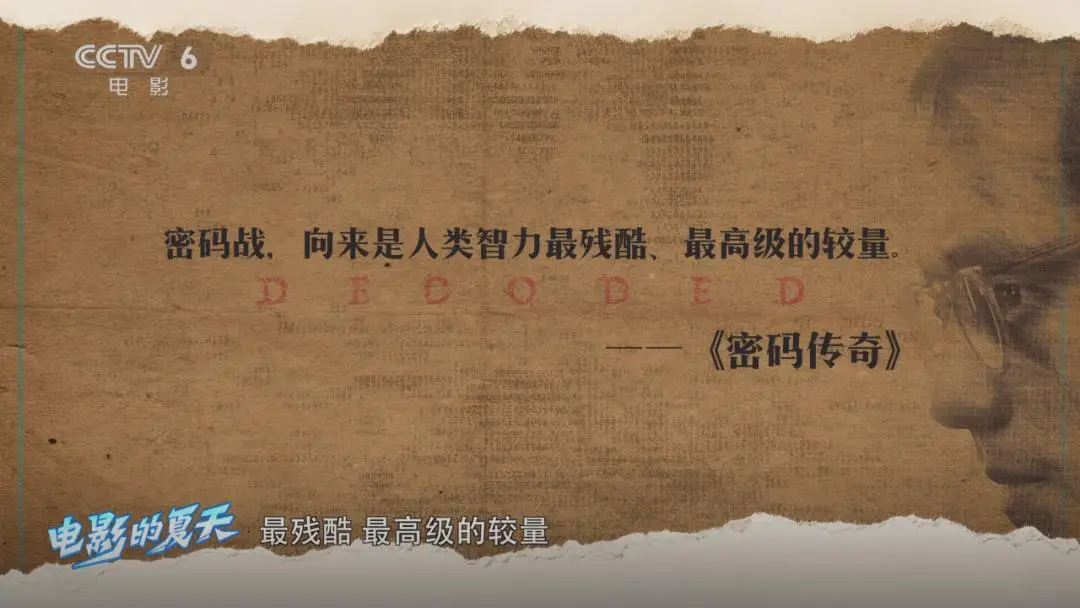 CCTV 6
电影
密码战，向来是人类智力最残酷、最高级的较量。
DECODED
——《密码传奇》
电影的夏天
最残酷 最高级的较量